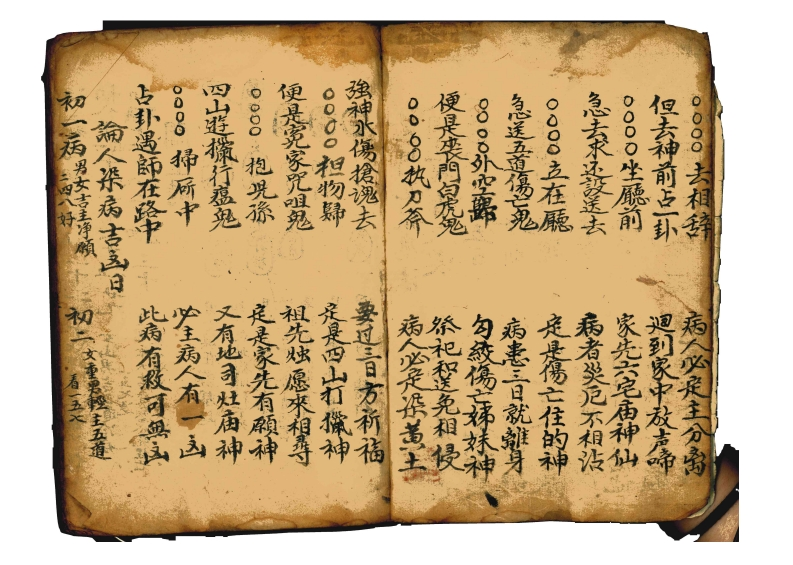 ○○○○去相辞
病人必定主分离
但去神前占一卦
廻到家中放声啼
○○○○坐廳前
家先六宅庙神仙
急去求还設送去
病者災厄不相沾
○○○○立在廳
定是傷亡住的神
急送五道傷亡鬼
病患三日就離身
○○○○外空
勾絞傷亡姊妹神
便是喪門白虎鬼
祭祀和送免相侵
○○○○执刀斧
病人必定染黄土
強神水傷搶魂去
要过三日方祈福
○○○○和物歸
定是四山打獵神
便是冤家咒咀鬼
祖先烛愿來相尋
○○○○抱児孫
定是家先有願神
四山遊獵行瘟鬼
又有地司灶庙神
○○○○掃所中
必主病人有一凶
占卦遇師在路中
此病有救可無凶
論人染病吉凶日
初一病 男女吉主净願
二四八好
初二 女重男輕主五道
看一五七